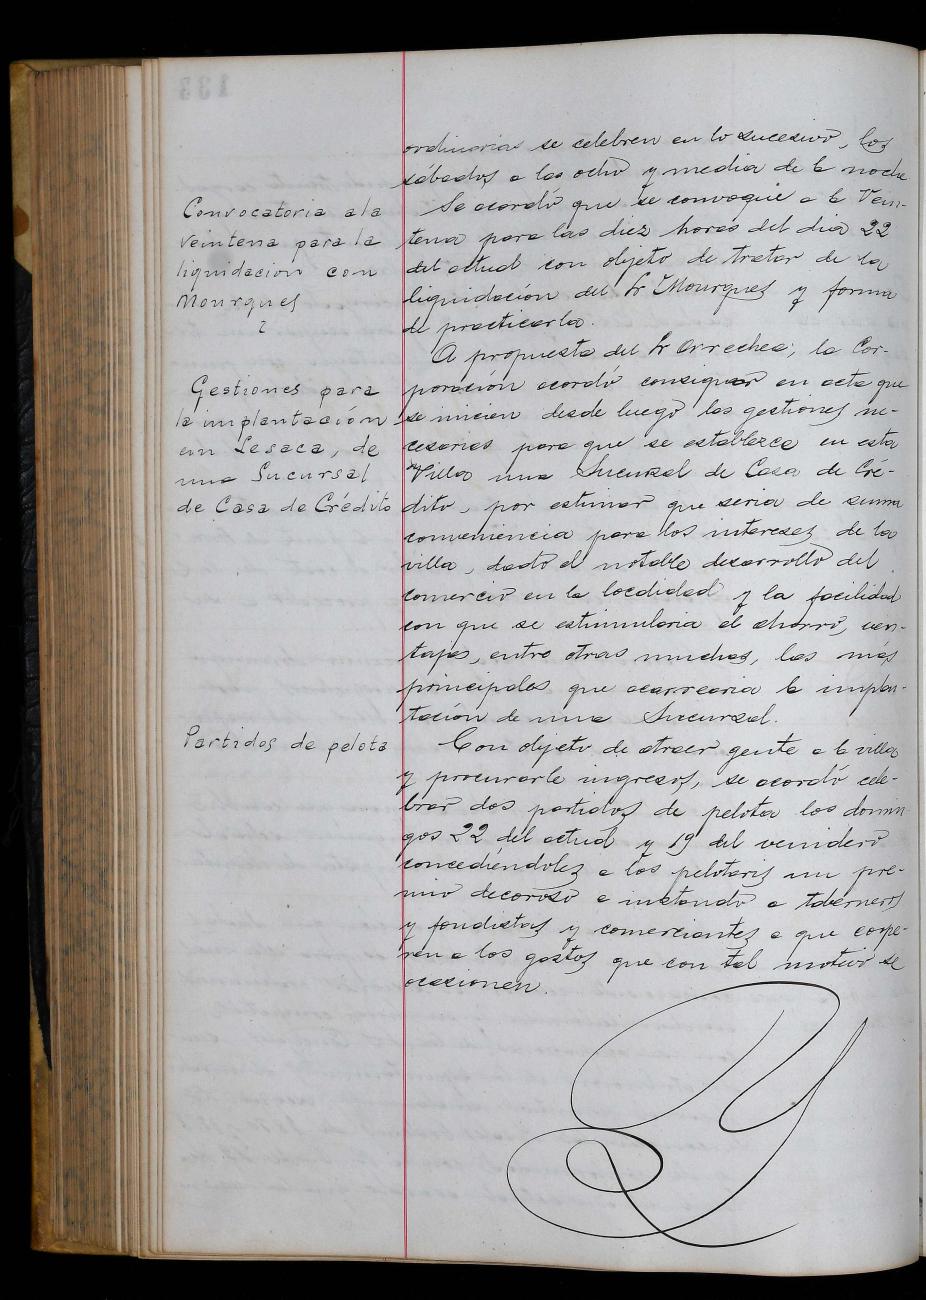 ordinarias se celebren en lo sucesivo, los
sábados a las ocho y media de la noche
Convocatoria a la
veintena para la
liquidacion con
Mourques
Se acordó que se convoque a la Vein-
tena para las diez horas del dia 22
del actual con objeto de tratar de la
liquidación del Sr Mourques y forma
de practicarla.
Gestiones para
la implantación
en Lesaca, de
una Sucursal
de Casa de Crédito
A propuesta del Sr Arreches; la Cor-
poración acordó consignar en acta que
se inicien desde luego las gestiones ne-
cesarias para que se establezca en esta
Villa una Sucursal de Casa de Cré-
dito, por estimar que seria de suma
conveniencia para los intereses de la
villa, dado el notable desarrollo del
comercio en la localidad y la facilidad
con que se estimularia el ahorro, ven-
tajas, entre otras muchas, las mas
principales que acarrearia la implan-
tación de una Sucursal.
Partidos de pelota
Con objeto de atraer gente a la villa
y procurarle ingresos, se acordó cele-
brar dos partidos de pelota los domin
gos 22 del actual y 19 del venidero
concediéndoles a los pelotaris un pre-
mio decoroso e instando a taberneros
y fondistas y comerciantes a que coope-
ren a los gastos que con tal motivo se
ocasionen.